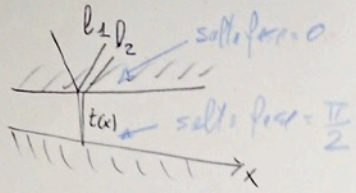 l1 l2
salto fase = 0
t(x)
salto fase = π/2
x